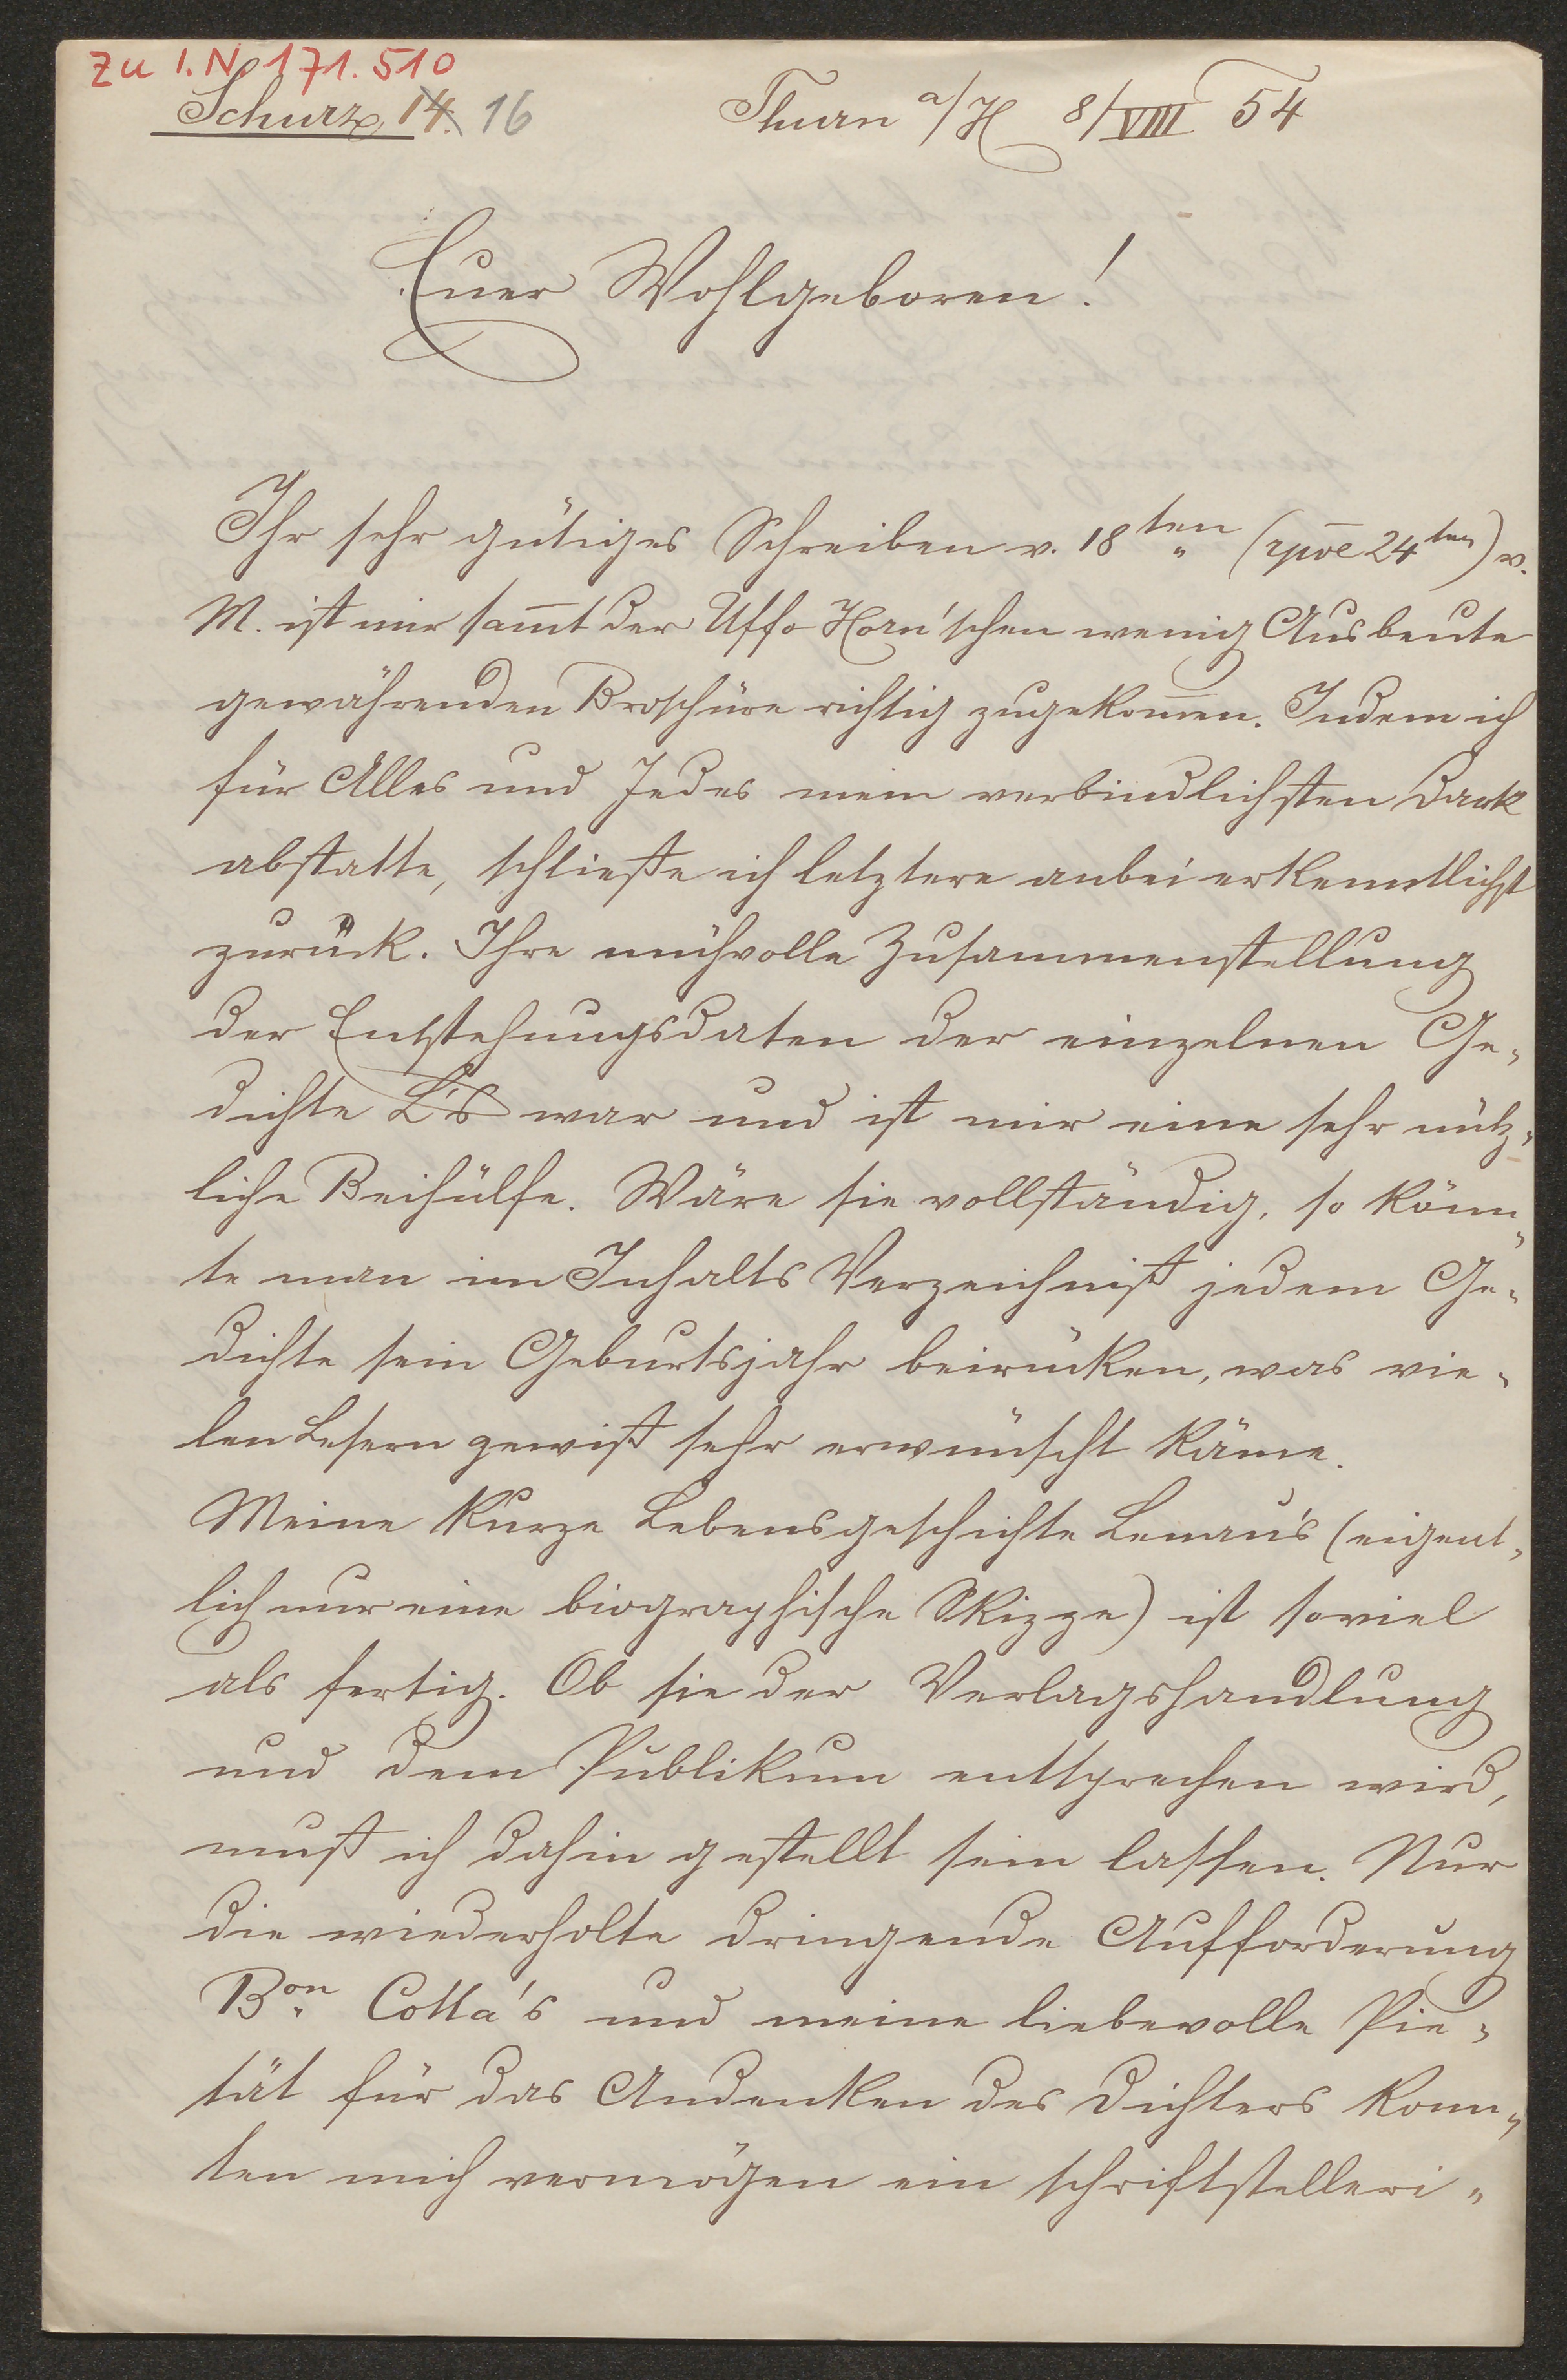 Zu I. N. 171.510
Schurz, 14. 16
Thurn a/H 8/VIII 54
Euer Wohlgeboren!
Ihr sehr gütiges Schreiben v. 18ten (rpve 24ten) v.
M. ist mir sam̅t der Uffo Horn'schen wenig Ausbeute
gewährenden Broschüre richtig zugekom̅en. Indem ich
für Alles und Jedes mein verbindlichsten Dank
abstatte, schließe ich letztere anbei erkenntlichst
zurück. Ihre mühvolle Zusammenstellung
der Entstehungsdaten der einzelnen Ge„
dichte L's war und ist mir eine sehr nütz„
liche Beihülfe. Wäre sie vollständig, so könn„
te man im Inhalts Verzeichniß jedem Ge„
dichte sein Geburtsjahr beirücken, was vie„
len Lesern gewiß sehr erwünscht käme.
Meine kurze Lebensgeschichte Lenau's (eigent„
lich nur eine biographische Skizze) ist soviel
als fertig. Ob sie der Verlagshandlung
und dem Publikum entsprechen wird,
muß ich dahin gestellt sein lassen. Nur
die wiederholte dringende Aufforderung
Bon Cotta's und meine liebevolle Pie„
tät für das Andenken des Dichters konn„
ten mich vermögen ein schriftstelleri„